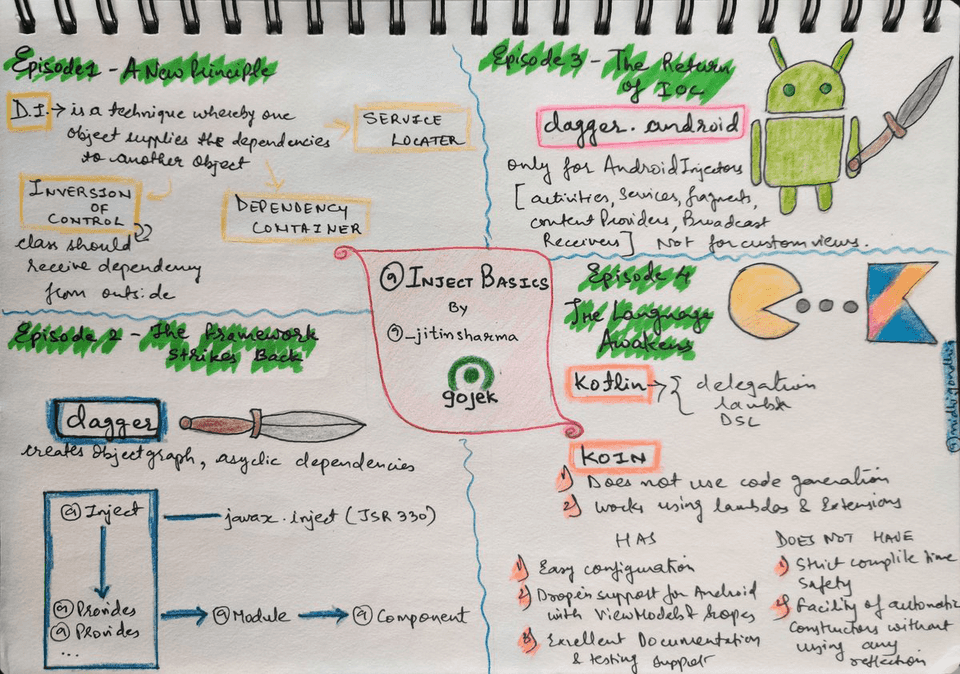 Episode 1 - A New Principle
D.I. → is a technique whereby one
object supplies the dependencies
to another object
SERVICE
LOCATER
INVERSION
OF
CONTROL
DEPENDENCY
CONTAINER
class should
receive dependency
from outside
Episode 2 - The Framework
Strikes Back
dagger
creates object graph, asyclic dependencies
@Inject
javax.inject (JSR 330)
@Provides
@Provides
...
@Module
@Component
@INJECT BASICS
By
@_jitinsharma
gojek
Episode 3 - The Return
of IOC
dagger.android
only for Android Injectors
[activities, Services, fragments,
content Providers, Broadcast
Receivers] Not for custom views.
Episode 4
The Language
Awakens
Kotlin → { delegation
lambda
DSL
KOIN
1) Does not use code generation
2) Works using lambdas & Extensions
HAS
1) Easy configuration
2) Drop in support for Android
with ViewModel & Scopes
3) Excellent Documentation
& testing support
DOES NOT HAVE
1) Strict complile time
safety
2) Facility of automatic
constructors without
using any
reflection